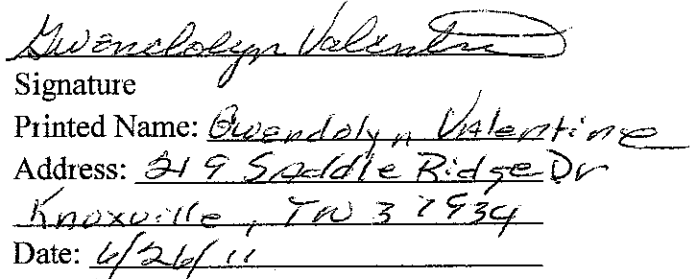 Gwendolyn Valentine
Signature
Printed Name: Gwendolyn Valentine
Address: 219 Saddle Ridge Dr
Knoxville, TN 37934
Date: 6/26/11